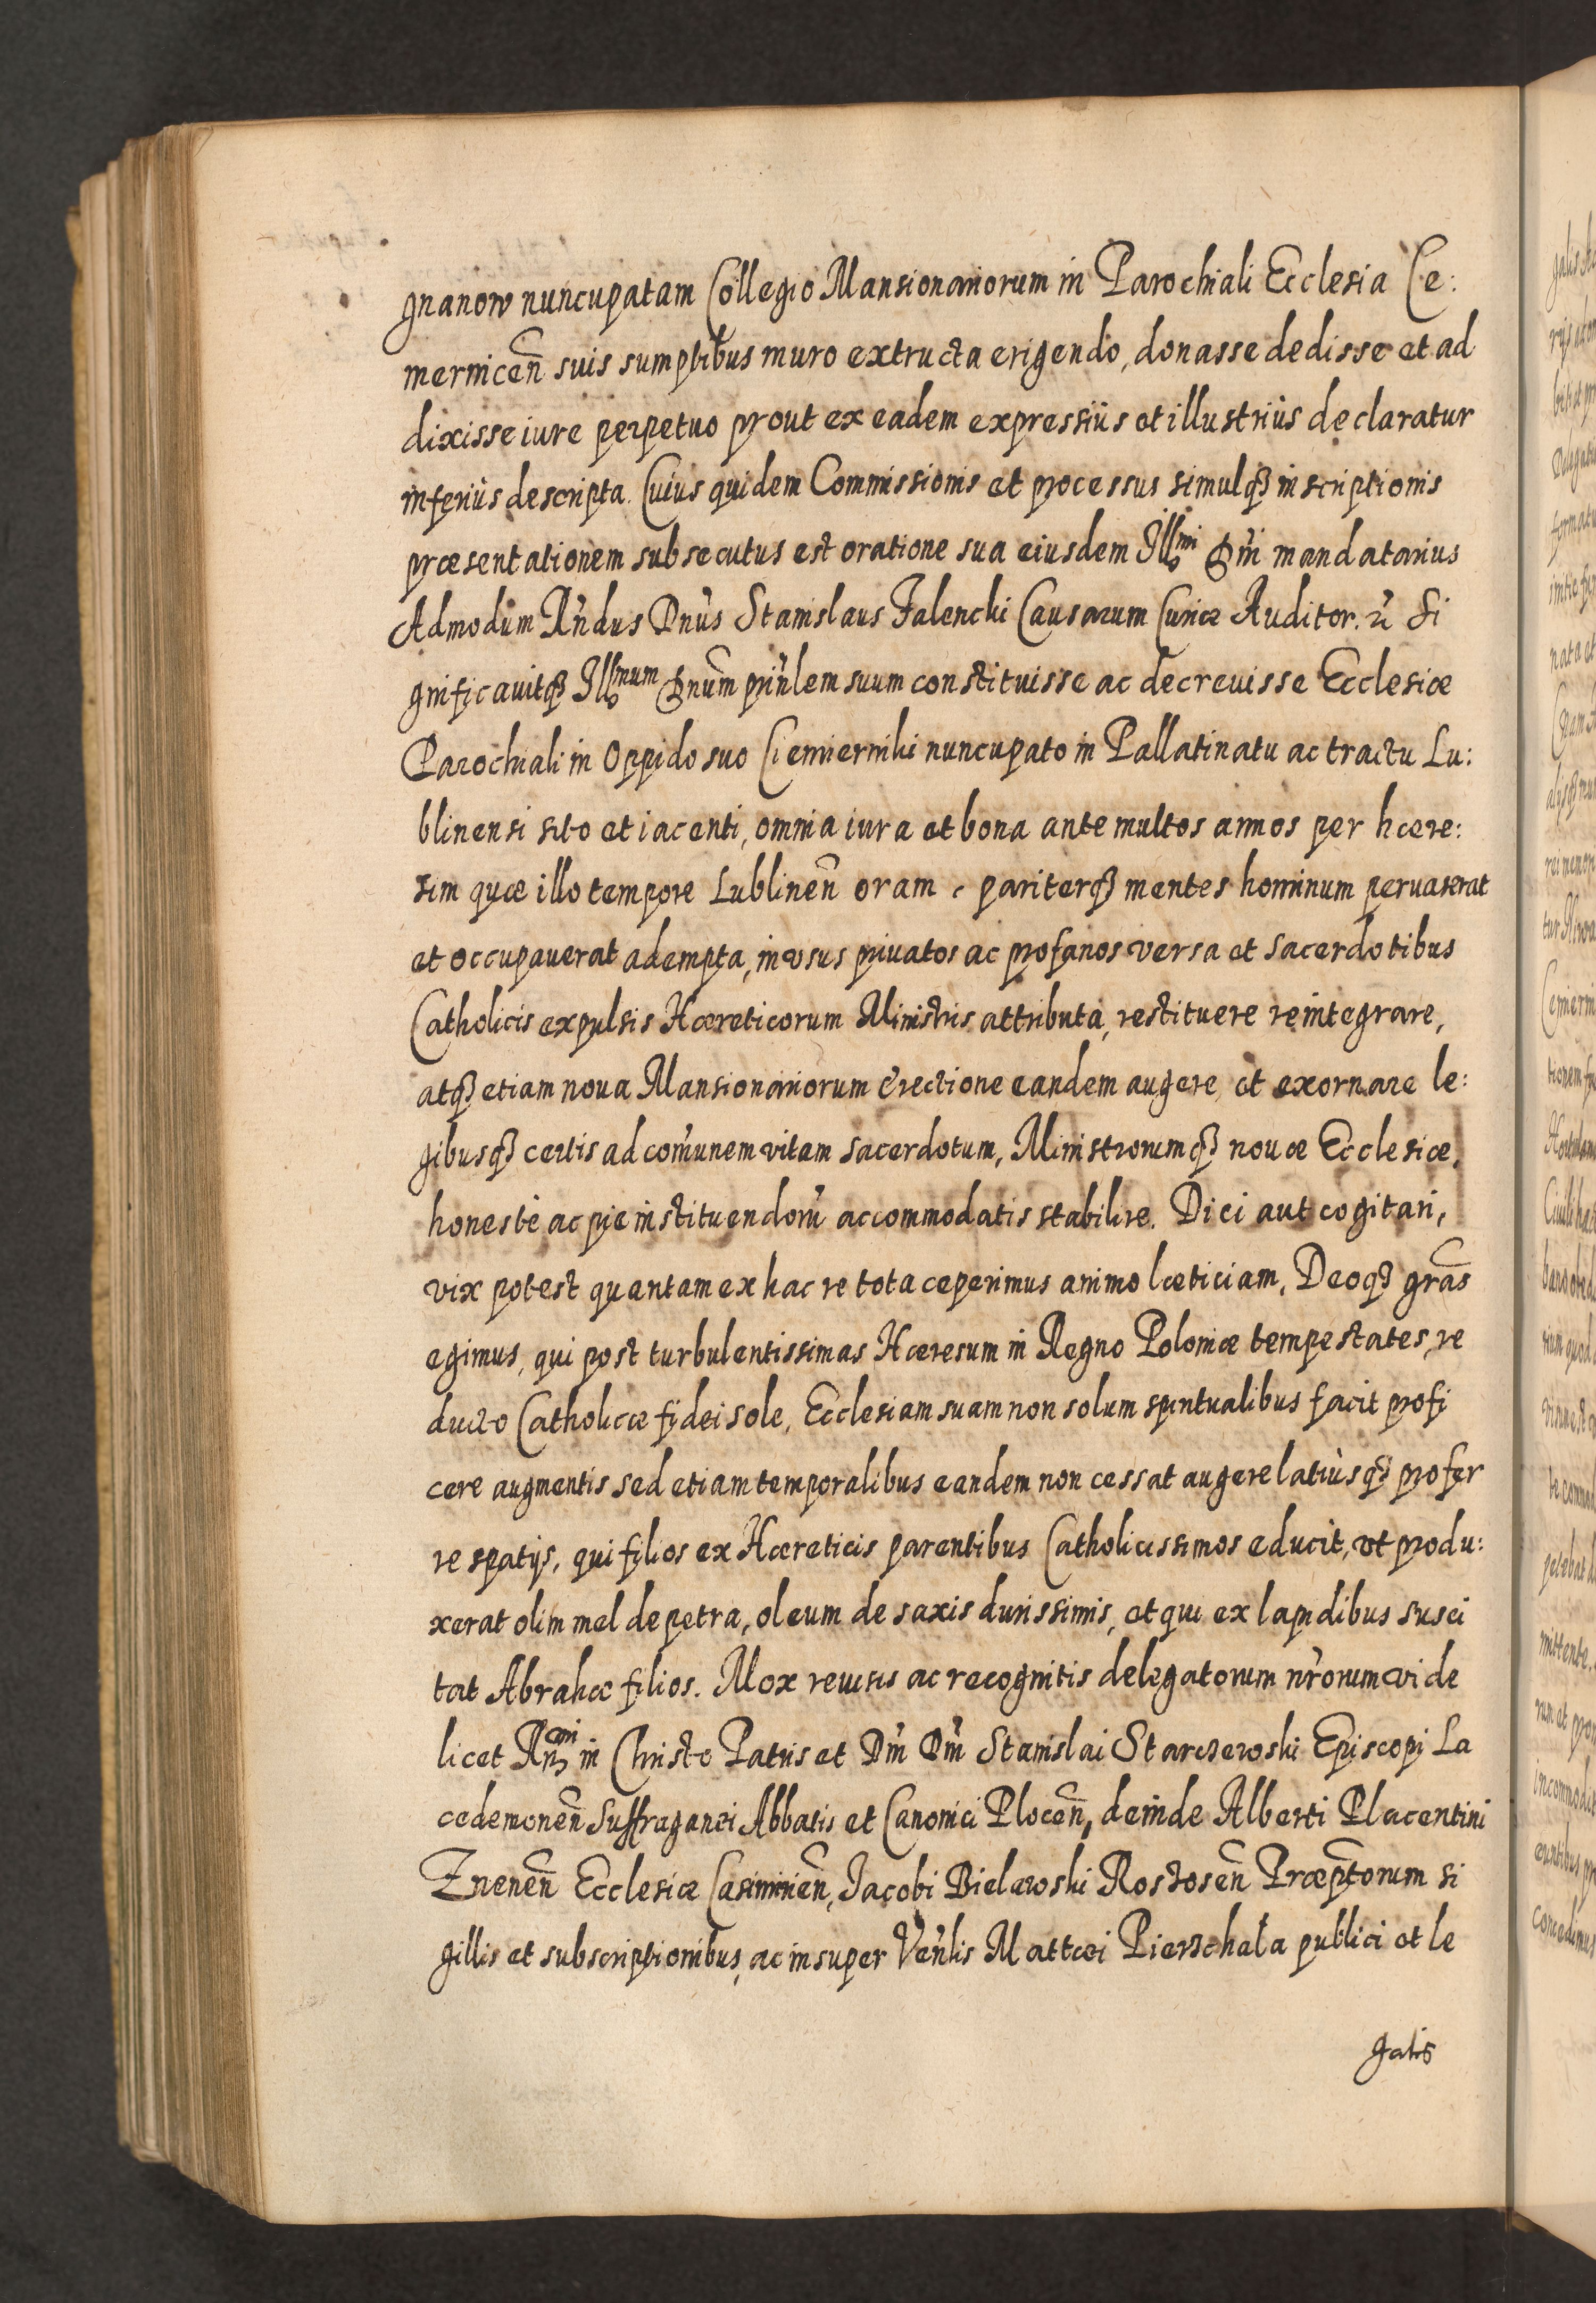 gnanow nuncupatam Collegio Mansionariorum in Parochiali Ecclesia Ce:
mernicen̄ suis sumptibus muro extructa erigendo, donasse dedisse et ad
dixisse iure perpetuo prout ex eadem expressiùs et illustriùs declaratur
inferiùs descripta. Cuius quidem Commissionis et processus simulqꝫ inscriptionis
præsentationem subsecutus est oratione sua eiusdem Illmi Dn̄i mandatarius
Admodum Rn̄dus Dn̄us Stanislaus Falencki Causarum Curiæ Auditor. Si
gnificauitqꝫ Illmum Dnum̄ prin̄lem suum constituisse ac decreuisse Ecclesiæ
Parochiali in Oppido suo Ciemierniki nuncupato in Pallatinatu ac tractu Lu:
blinensi sito et iacenti, omnia iura et bona ante multos annos per hære:
sim quæ illo tempore Lublinen̄ oram, pariterqꝫ mentes hominum peruaserat
et occupauerat adempta, in vsus priuatos ac profanos versa et sacerdotibus
Catholicis expulsis Hæreticorum Ministris attributa, restituere reintegrare,
atqꝫ etiam noua Mansionariorum Erectione eandem augere et exornare le:
gibusqꝫ certis ad com̄unem vitam sacerdotum, Ministrorumqꝫ nouæ Ecclesiæ,
honestè ac piè instituendorū accommodatis stabilire. Dici aut cogitari,
vix potest quantam ex hac re tota ceperimus animo læticiam, Deoqꝫ grās
egimus, qui post turbulentissimas Hæresum in Regno Poloniæ tempestates, re
ducto Catholicæ fidei sole, Ecclesiam suam non solum spiritualibus facit profi
cere augmentis sed etiam temporalibus eandem non cessat augere latiùsqꝫ profer
re spatijs, qui filios ex Hæreticis parentibus Catholicissimos educit, vt produ:
xerat olim mel de petra, oleum de saxis durissimis, et qui ex lapidibus susci
tat Abrahæ filios. Mox reuisis ac recognitis delegatorum nr̄orum vide
licet in Christo Patris et Dn̄i Dn̄i Stanislai Starczewski Episcopi La
cedemonen̄ Suffraganei Abbatis et Canonici Plocen̄, deinde Alberti Placentini
Znenen̄ Ecclesiæ Casimirien̄, Jacobi Bielawski Rostosen̄ Præptorum̄ si
gillis et subscriptionibus, ac insuper Ven̄lis Mattæi Pierzchała publici et le
galis